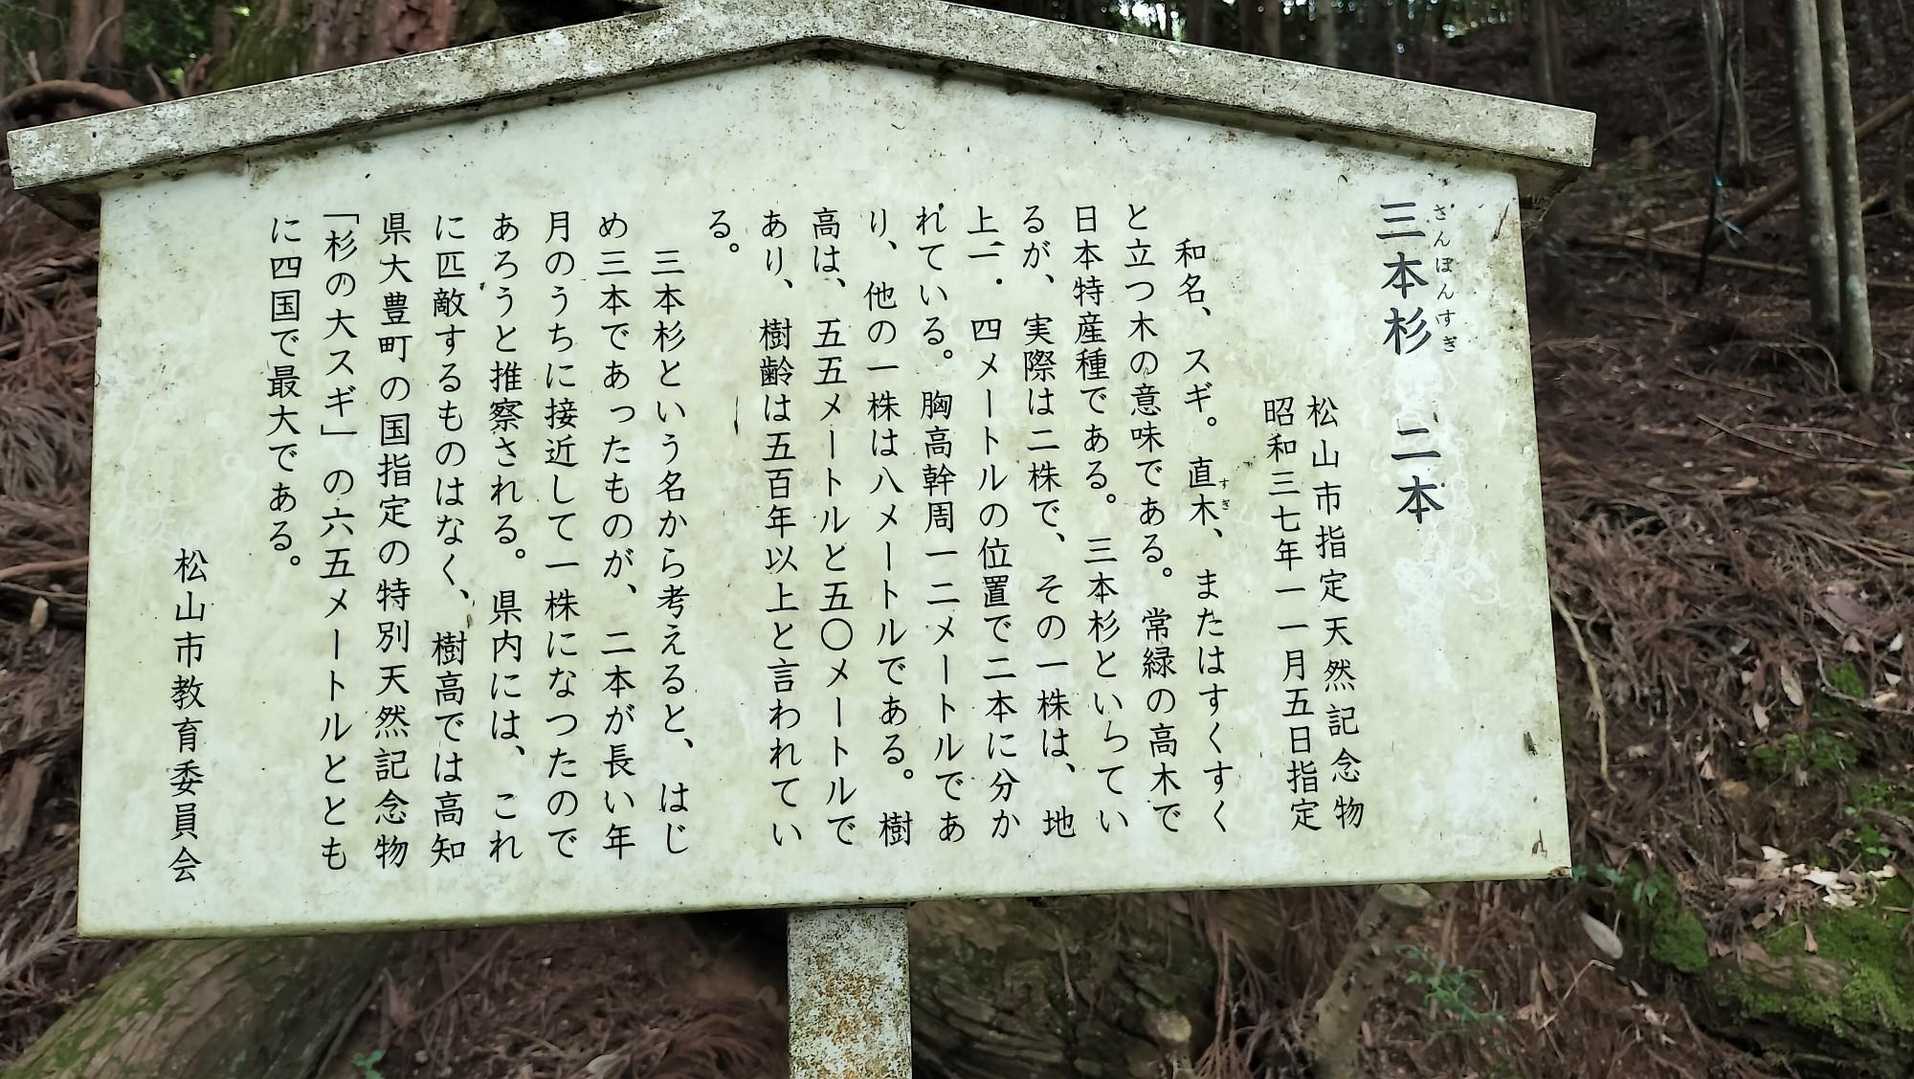 さんぼんすぎ
三本杉　二本
松山市指定天然記念物
昭和三七年一一月五日指定
和名、スギ。直木、またはすくすく
すぎ
と立つ木の意味である。常緑の高木で
日本特産種である。三本杉といってい
るが、実際は二株で、その一株は、地
上一・四メートルの位置で二本に分か
れている。胸高幹周一二メートルであ
り、他の一株は八メートルである。樹
高は、五五メートルと五〇メートルで
あり、樹齢は五百年以上と言われてい
る。
三本杉という名から考えると、はじ
め三本であったものが、二本が長い年
月のうちに接近して一株になつたので
あろうと推察される。県内には、これ
に匹敵するものはなく、樹高では高知
県大豊町の国指定の特別天然記念物
「杉の大スギ」の六五メートルととも
に四国で最大である。
松山市教育委員会